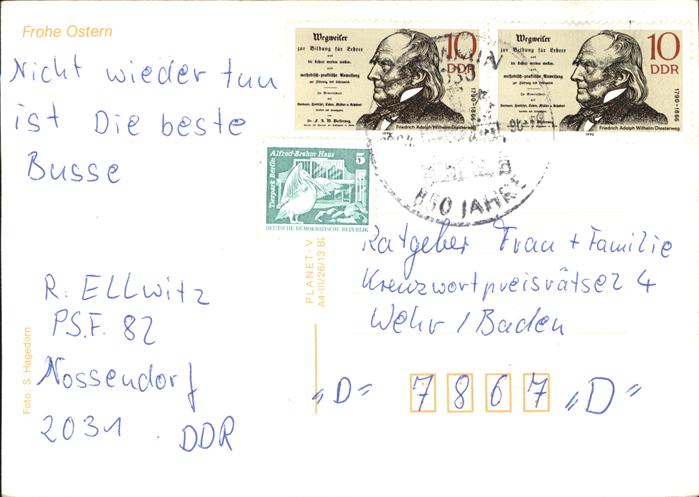 Frohe Ostern
Nicht wieder tun
ist Die beste
Busse
R. Ellwitz
PS.F. 82
Nossendorf
2031 . DDR
Foto: S. Hagedorn
PLANET-V
A4-III/26/13
Wegweiser
zur Bildung für Lehrer
10
DDR
1790-1866
Friedrich Adolph Wilhelm Diesterweg
Wegweiser
zur Bildung für Lehrer
10
DDR
1790-1866
Friedrich Adolph Wilhelm Diesterweg
Alfred-Brehm-Haus
Tierpark Berlin
5
DEUTSCHE DEMOKRATISCHE REPUBLIK
JAHRE
Ratgeber Frau + Familie
Kreuzwortpreisrätsel 4
Wehr / Baden
„D" 7867 „D"